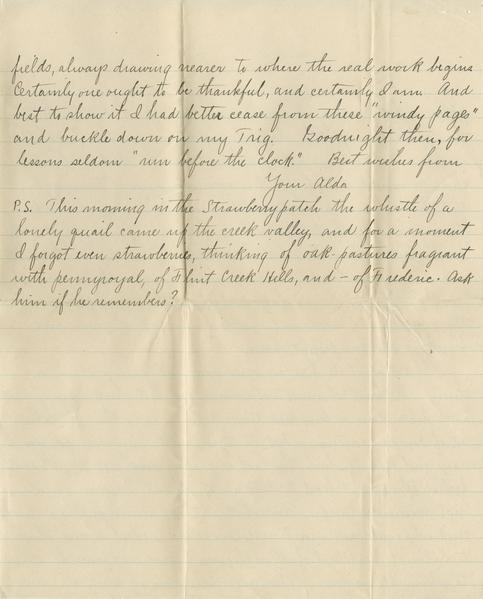 fields, always drawing nearer to where the real work begins
Certainly one ought to be thankful, and certainly I am. And
best to show it I had better cease from these "windy pages"
and buckle down on my Trig. Goodnight then, for
lessons seldom "run before the clock." Best wishes from
Your Alda
P.S. This morning in the Strawberry patch the whistle of a
lonely quail came up the creek valley, and for a moment
I forgot even strawberries, thinking of oak-pastures fragrant
with pennyroyal, of Flint Creek Hills, and - of Frederic. Ask
him if he remembers?